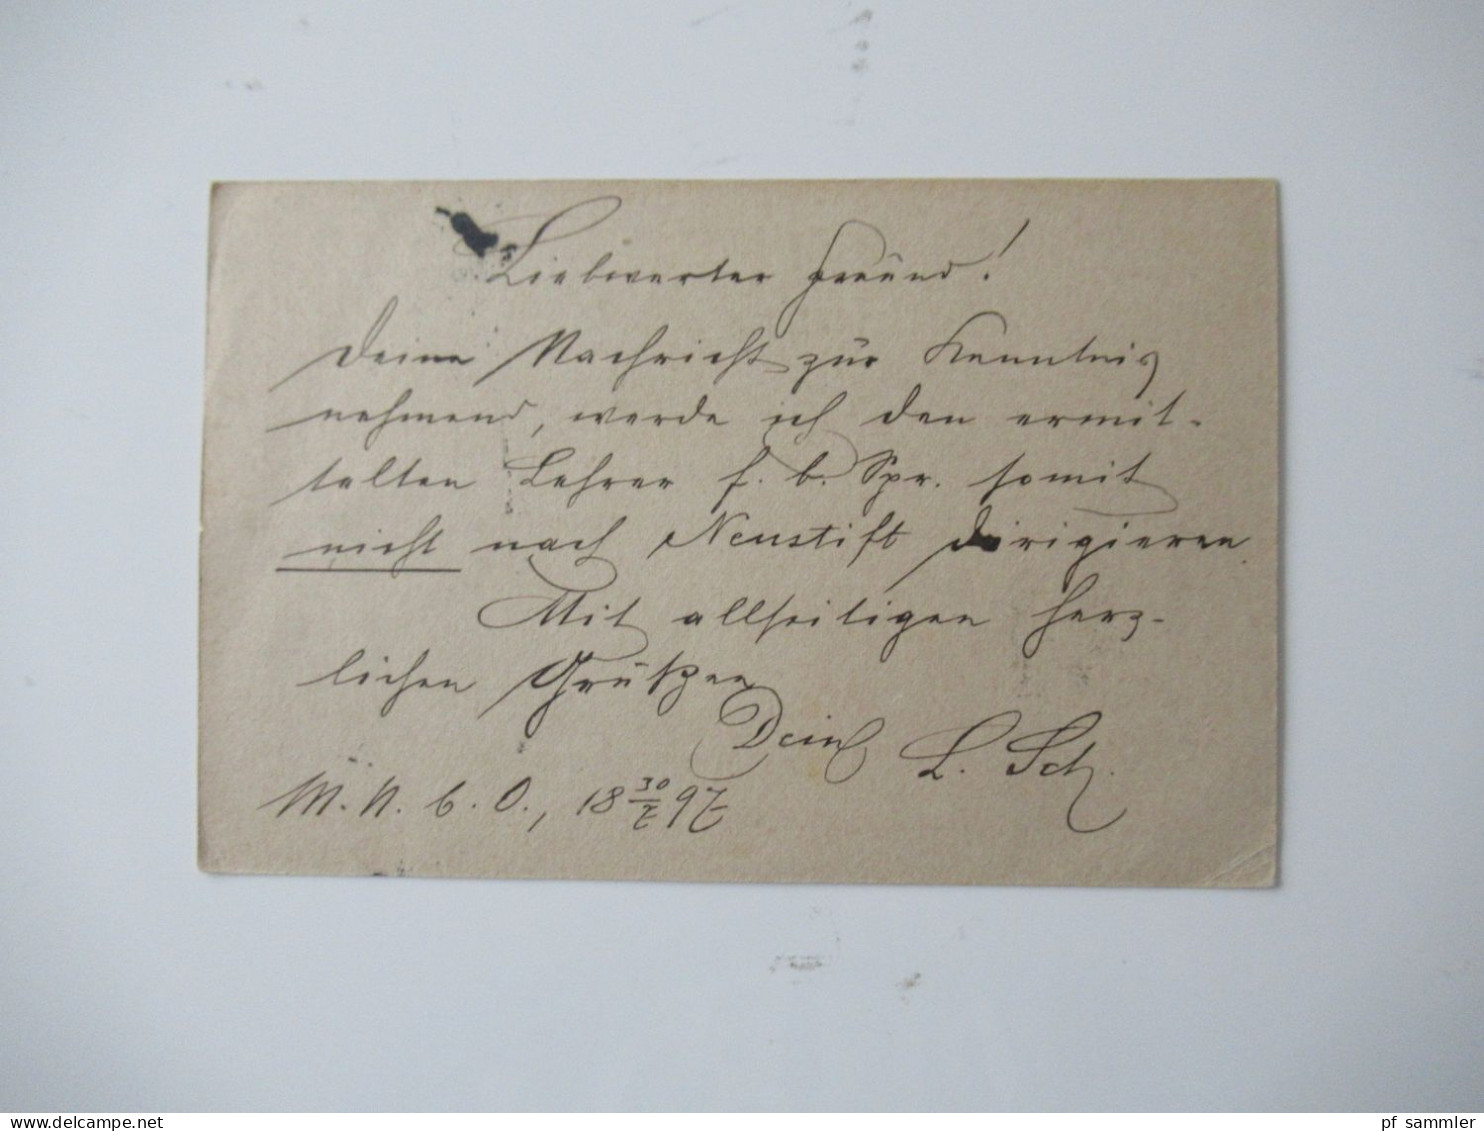 Liebwerter Freund!
Deine Nachricht zur Kenntnis
nehmend, werde ich den ermit-
telten Lehrer f. b. Spr. somit
nicht nach Neustift dirigieren.
Mit allseitigen herz-
lichen Grüßen
Dein L. Sch.
M. N. b. O., 18 30/7 97
pf sammler
www.delcampe.net